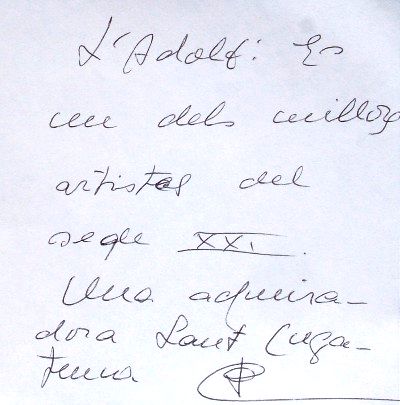 L'Adolf: Es
un dels millors
artistes del
segle XXI.
Una admira-
dora Sant Cuga-
tenca